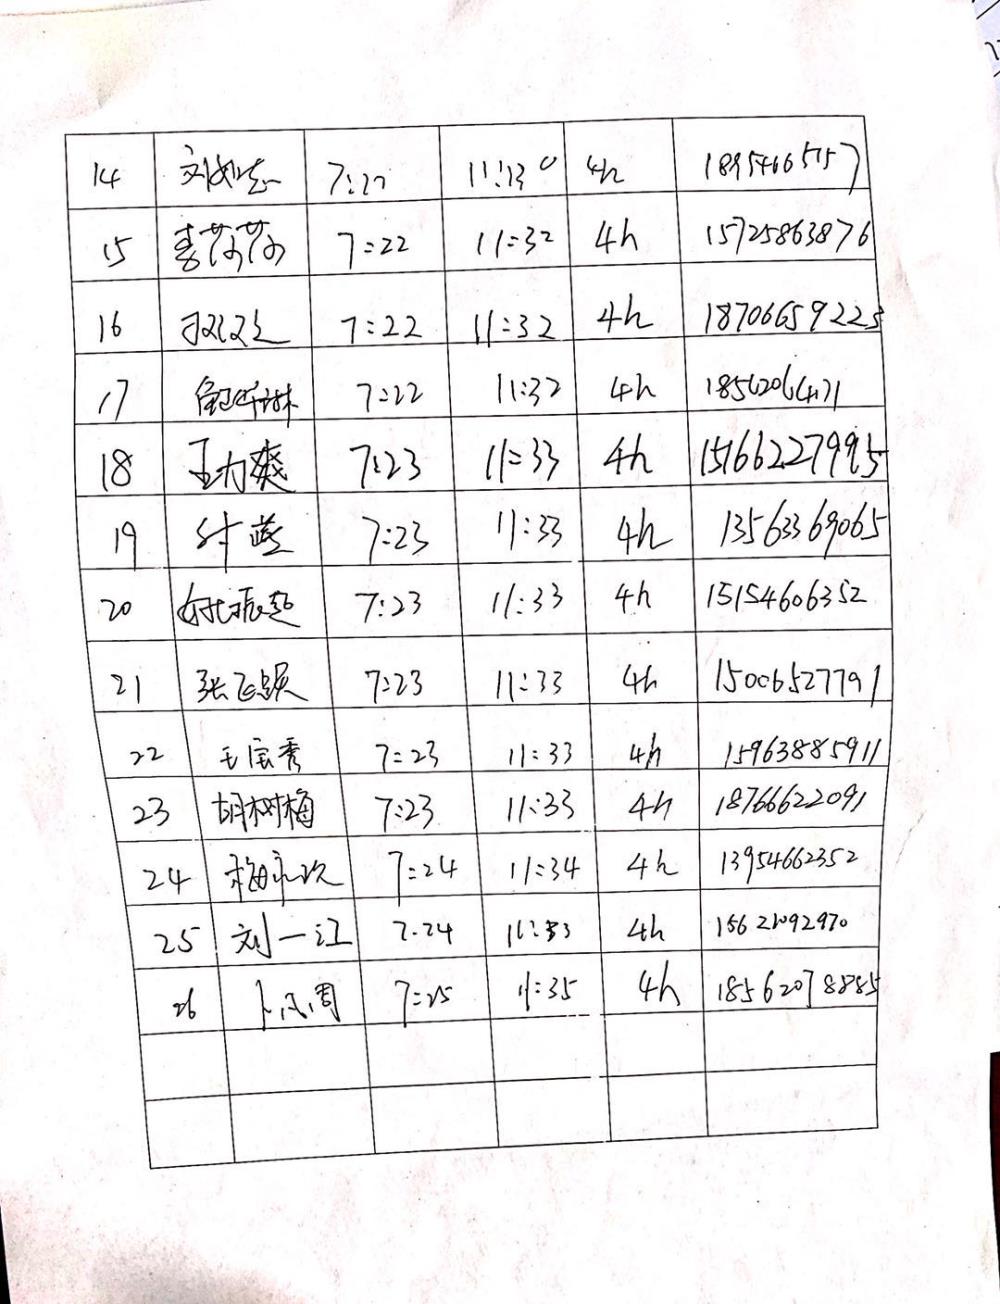 14 7:22 11:30 4h
15 李莎莎 7:22 11:32 4h 15725863876
16 7:22 11:32 4h 18706659225
17 7:22 11:32 4h 18562064171
18 王力爽 7:23 11:33 4h 15166227995
19 付蕊 7:23 11:33 4h 13563369065
20 7:23 11:33 4h 15154606352
21 张飞跃 7:23 11:33 4h 15006527791
22 王宝秀 7:23 11:33 4h 15963885911
23 胡树梅 7:23 11:33 4h 18766622091
24 7:24 11:34 4h 13954662352
25 刘一江 7:24 11:33 4h 15621092970
26 卜凡周 7:25 11:35 4h 18562078885